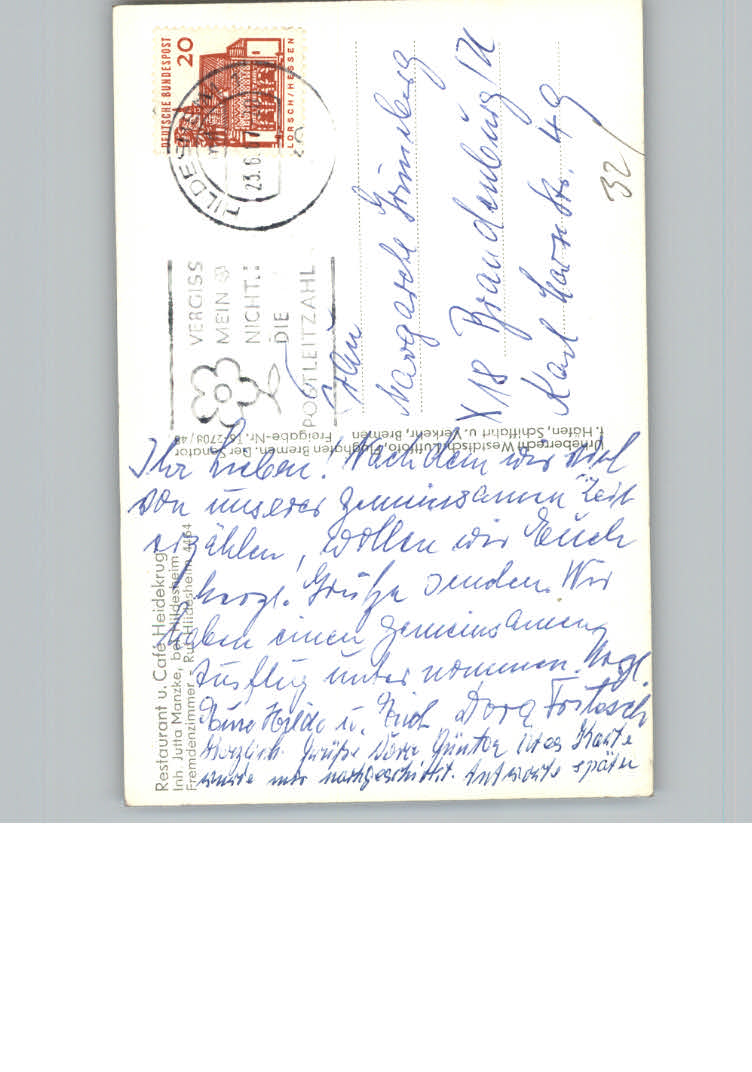 DEUTSCHE BUNDESPOST
20
LORSCH/HESSEN
HILDESHEIM
23.6.
VERGISS
MEIN
NICHT:
DIE
POSTLEITZAHL
Frau
X 18 Brandenburg/H
Karl
49
32
Urheberrecht Westdisch. Luftfoto, Flughafen Bremen, Der Senator
f. Häfen, Schiffahrt u. Verkehr, Bremen Freigabe-Nr.
Restaurant u. Café Heidekrug
Inh. Jutta Manzke, bei Hildesheim
Fremdenzimmer - Ruf Hildesheim 4464
Ihr Lieben! Nachdem wir viel
von unserer gemeinsamen Zeit
erzählen, wollen wir Euch
herzl. Grüße senden. Wir
haben einen gemeinsamen
Ausflug unternommen. Herzl.
Eure Hilde u. Dora
Herzlich Grüße Günter Karte
wurde mir nachgeschickt. Antworte später